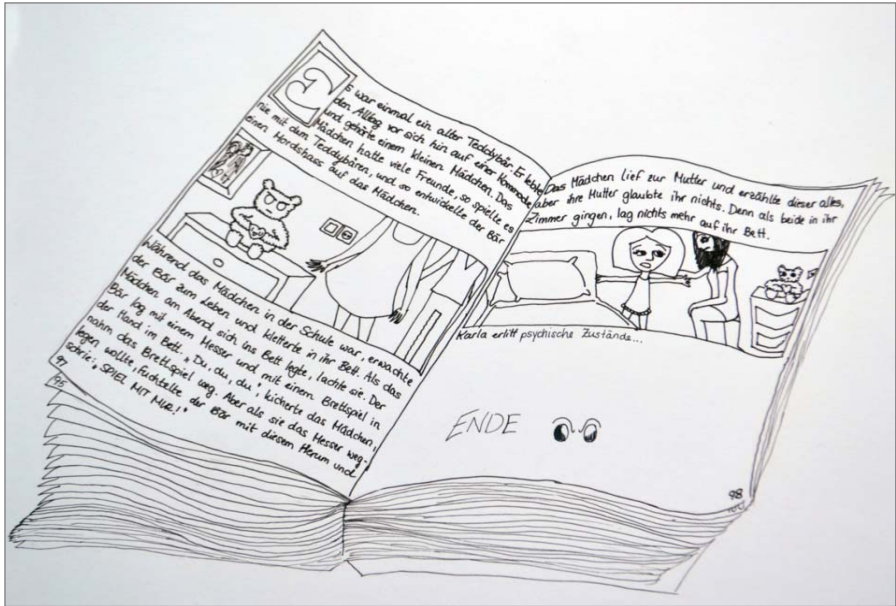 Es war einmal ein alter Teddybär. Er lebte
den Alltag vor sich hin auf einer Kommode
und gehörte einem kleinen Mädchen. Das
Mädchen hatte viele Freunde, so spielte es
nie mit dem Teddybären, und so entwickelte der Bär
einen Mordshass auf das Mädchen.
Während das Mädchen in der Schule war, erwachte
der Bär zum Leben und kletterte in ihr Bett. Als das
Mädchen am Abend sich ins Bett legte, lachte sie. Der
Bär lag mit einem Messer und mit einem Brettspiel in
der Hand im Bett. "Du, du, du", kicherte das Mädchen,
nahm das Brettspiel weg. Aber als sie das Messer weg-
legen wollte, fuchtelte der Bär mit diesem herum und
schrie: "SPIEL MIT MIR!"
97
95
Das Mädchen lief zur Mutter und erzählte dieser alles,
aber ihre Mutter glaubte ihr nichts. Denn als beide in ihr
Zimmer gingen, lag nichts mehr auf ihr Bett.
Karla erlitt psychische Zustände...
ENDE
98